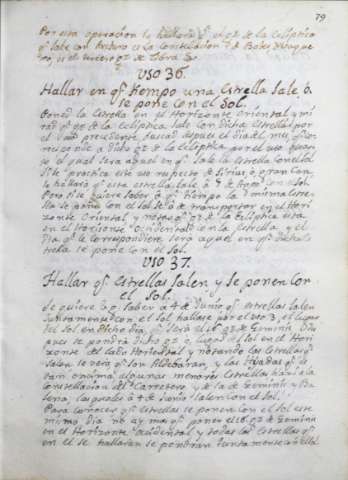 79
Por esta operacion se hallara q.e el g.o de la ecliptica
q.e sale con Arturo es la Constelacion de Bootes
es el tercero g.o de Libra
USO 36.
Hallar en q.e tiempo una estrella sale ò
se pone con el Sol.
Poned la estrella en el Horizonte oriental y mi
rad q.e g.o de la ecliptica sale con dicha estrella, y por
el uso precedente sacad despues el dia del mes q.e cor
responde a dicho g.o de la ecliptica por el uso
el qual sera aquel en q.e sale la estrella con el sol
Si se practica este uso respecto de Sirius ò gran Can,
se hallarà q.e esta estrella sale à de con el sol
Pero si se quiere saber q.e tiempo la misma estre
lla se pone con el sol se à de transportar en el Hori
zonte Oriental y notar q.e g.o de la ecliptica está
en el Horizonte Occidental con la estrella, y el
dia q.e le correspondiere sera aquel en q.e dicha es
trella se pone con el sol.
USO 37.
Hallar q.e estrellas salen, y se ponen con
el Sol.
Se quiere p.r saber à 4 de Junio q.e estrellas salen
juntamente con el sol hallase por el uso 3, el lugar
del Sol en dicho dia q.e serà el 16 g.o de Geminis
pues se pondrà dicho g.o ò lugar del sol en el Hori
zonte del lado Horiental y notando las estrellas q.e
salen se verà q.e son Aldebaran, y las Hyadas q.e es
tan encima algunas menores estrellas hacia la
Constelacion del Carretero y de la de Geminis y
las quales à 4 de Junio salen con el Sol.
Para conocer q.e estrellas se ponen con el sol este
mismo dia no ay mas q.e poner el 16 g.o de Geminis
en el Horizonte Occidental y todas las estrellas q.e
en el se hallaran se pondran juntamente con el Sol